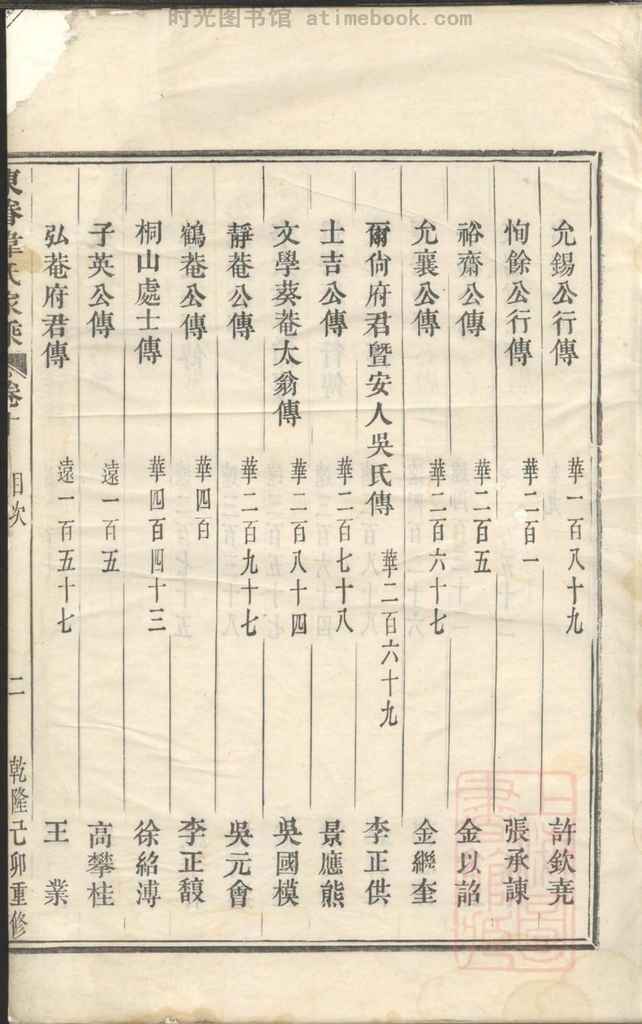 时光图书馆 atimebook.com
允錫公行傳 華一百八十九 許欽堯
恂餘公行傳 華二百一 張承諫
裕齋公傳 華二百五 金以詔
允襄公傳 華二百六十七 金繼奎
爾尙府君暨安人吳氏傳 華二百六十九 李正供
士吉公傳 華二百七十八 景應熊
文學葵菴太翁傳 華二百八十四 吳國模
靜菴公傳 華二百九十七 吳元會
鶴菴公傳 華四百 李正馥
桐山處士傳 華四百四十三 徐紹溥
子英公傳 遠一百五 高攀桂
弘菴府君傳 遠一百五十七 王業
氏家乘 卷十 目次 二 乾隆己卯重修